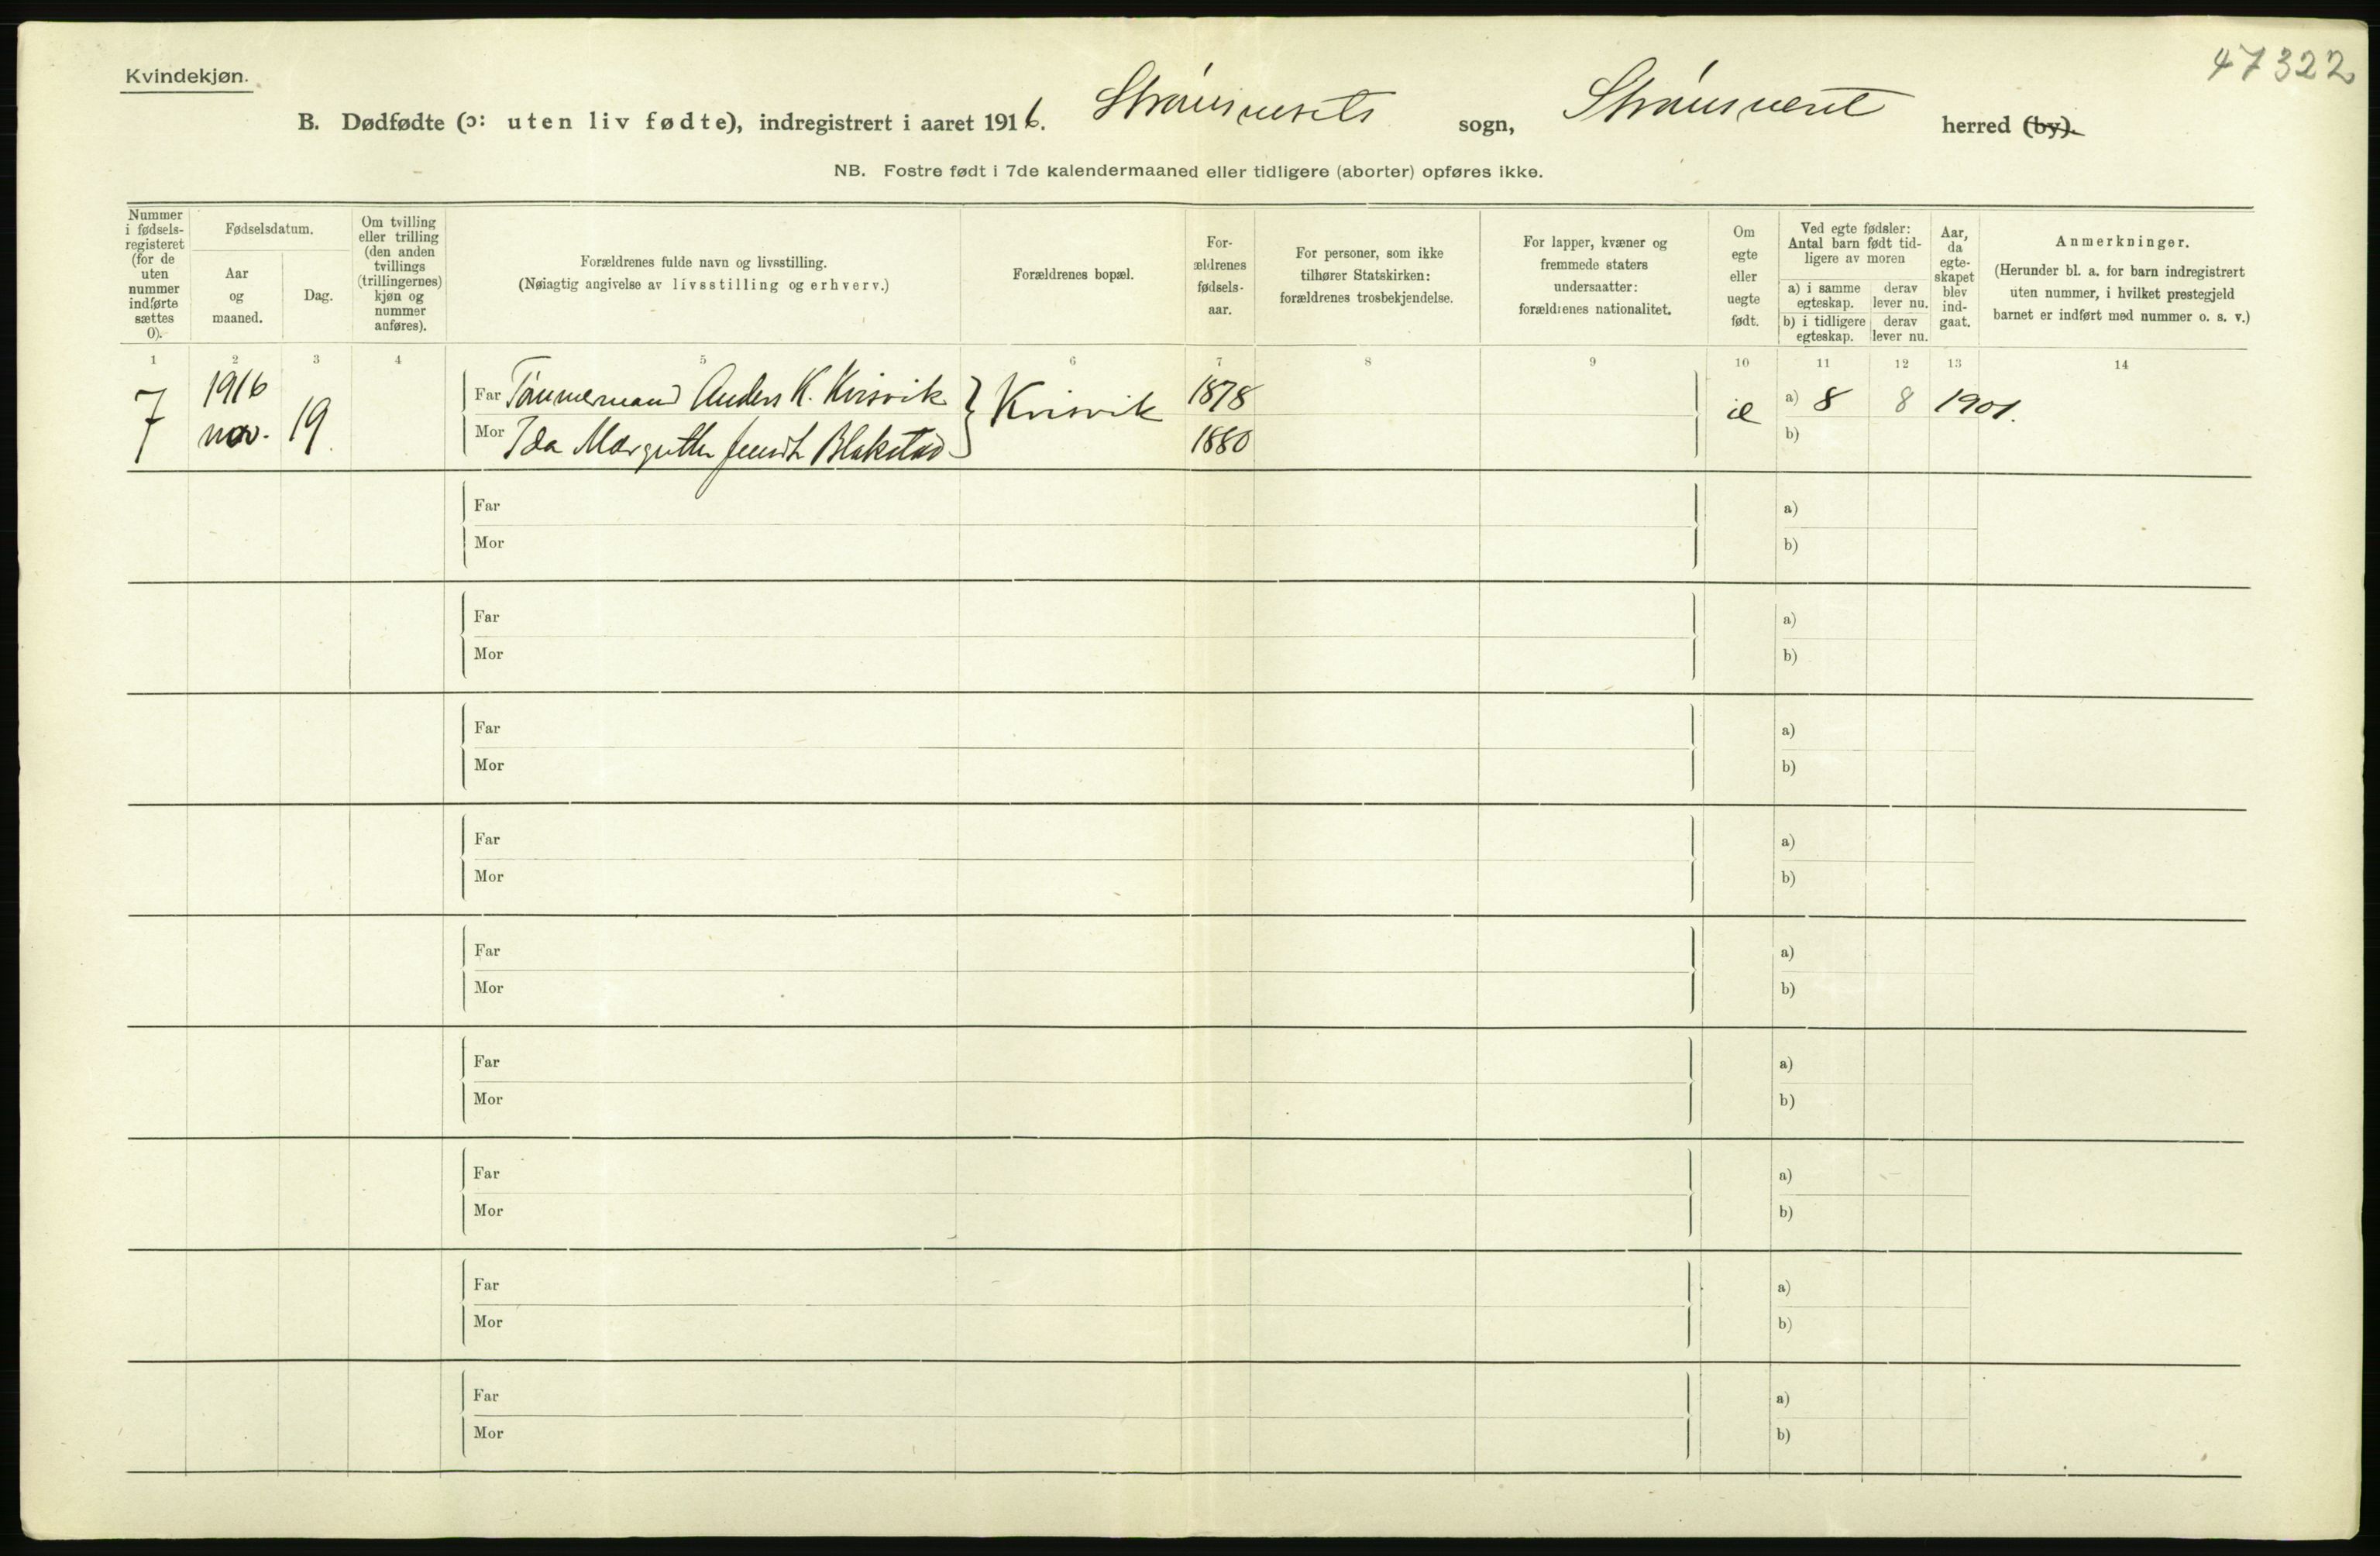 47322
Kvindekjøn.
B. Dødfødte (ɔ: uten liv fødte), indregistrert i aaret 1916. Strømsnesets sogn, Strømsneset herred (by).
NB. Fostre født i 7de kalendermaaned eller tidligere (aborter) opføres ikke.
Nummer i fødsels-registeret (for de uten nummer indførte sættes 0).
Fødselsdatum.
Aar og maaned.
Dag.
Om tvilling eller trilling (den anden tvillings (trillingernes) kjøn og nummer anføres).
Forældrenes fulde navn og livsstilling.
(Nøiagtig angivelse av livsstilling og erhverv.)
Forældrenes bopæl.
For-ældrenes fødsels-aar.
For personer, som ikke tilhører Statskirken: forældrenes trosbekjendelse.
For lapper, kvæner og fremmede staters undersaatter: forældrenes nationalitet.
Om egte eller uegte født.
Ved egte fødsler: Antal barn født tid-ligere av moren
a) i samme egteskap.
derav lever nu.
b) i tidligere egteskap.
derav lever nu.
Aar, da egte-skapet blev ind-gaat.
Anmerkninger.
(Herunder bl. a. for barn indregistrert uten nummer, i hvilket prestegjeld barnet er indført med nummer o. s. v.)
1 2 3 4 5 6 7 8 9 10 11 12 13 14
7 1916 nov. 19.
Far Tømmermand Anders K. Krisvik
Mor Ida Margrethe Blakstad
Krisvik
1878
1880
a) 8 8 1901.
b)
Far a)
Mor b)
Far a)
Mor b)
Far a)
Mor b)
Far a)
Mor b)
Far a)
Mor b)
Far a)
Mor b)
Far a)
Mor b)
Far a)
Mor b)
Far a)
Mor b)